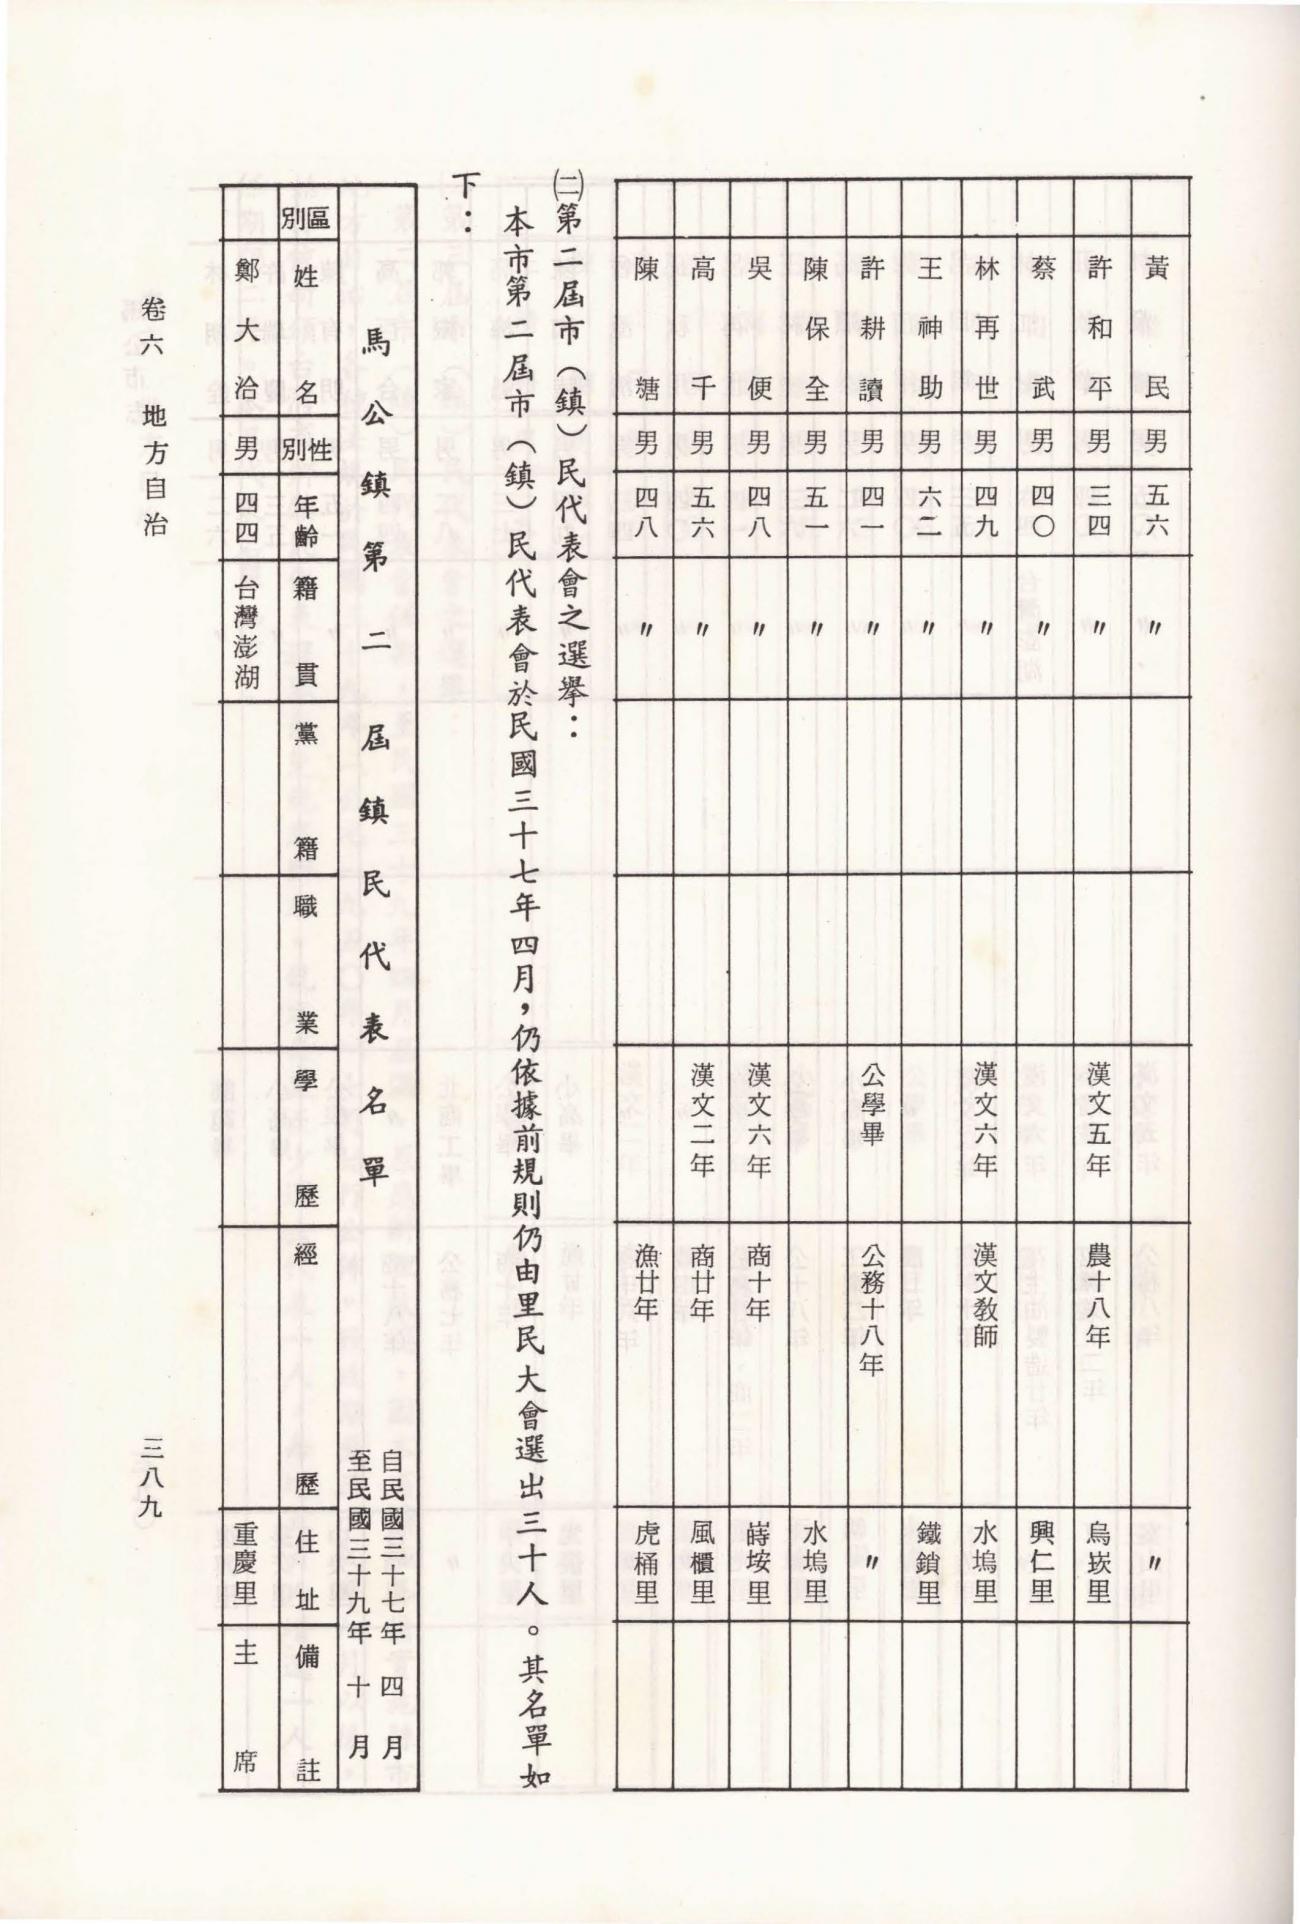 黃民 男 五六 〃 〃
許和平 男 三四 〃 漢文五年 農十八年 烏崁里
蔡武 男 四〇 〃 興仁里
林再世 男 四九 〃 漢文六年 漢文教師 水塢里
王神助 男 六二 〃 鐵鎖里
許耕讀 男 四一 〃 公學畢 公務十八年 〃
陳保全 男 五一 〃 水塢里
吳便 男 四八 〃 漢文六年 商十年 蒔垵里
高千 男 五六 〃 漢文二年 商廿年 風櫃里
陳塘 男 四八 〃 漁廿年 虎桶里
㈡第二屆市（鎮）民代表會之選舉：
本市第二屆市（鎮）民代表會於民國三十七年四月，仍依據前規則仍由里民大會選出三十人。其名單如
下：
馬公鎮第二屆鎮民代表名單
自民國三十七年四月
至民國三十九年十月
區別 姓名 性別 年齡 籍貫 黨籍 職業 學歷 經歷 住址 備註
鄭大洽 男 四四 台灣澎湖 重慶里 主席
卷六 地方自治
三八九